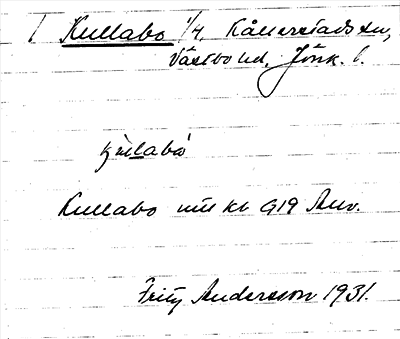 Kullabo 1/4, Kållerstads sn,
Västbo hd, Jönk. l.
kullabo
Kullabo mtl kb 919 Anv.
Fritz Andersson 1931.